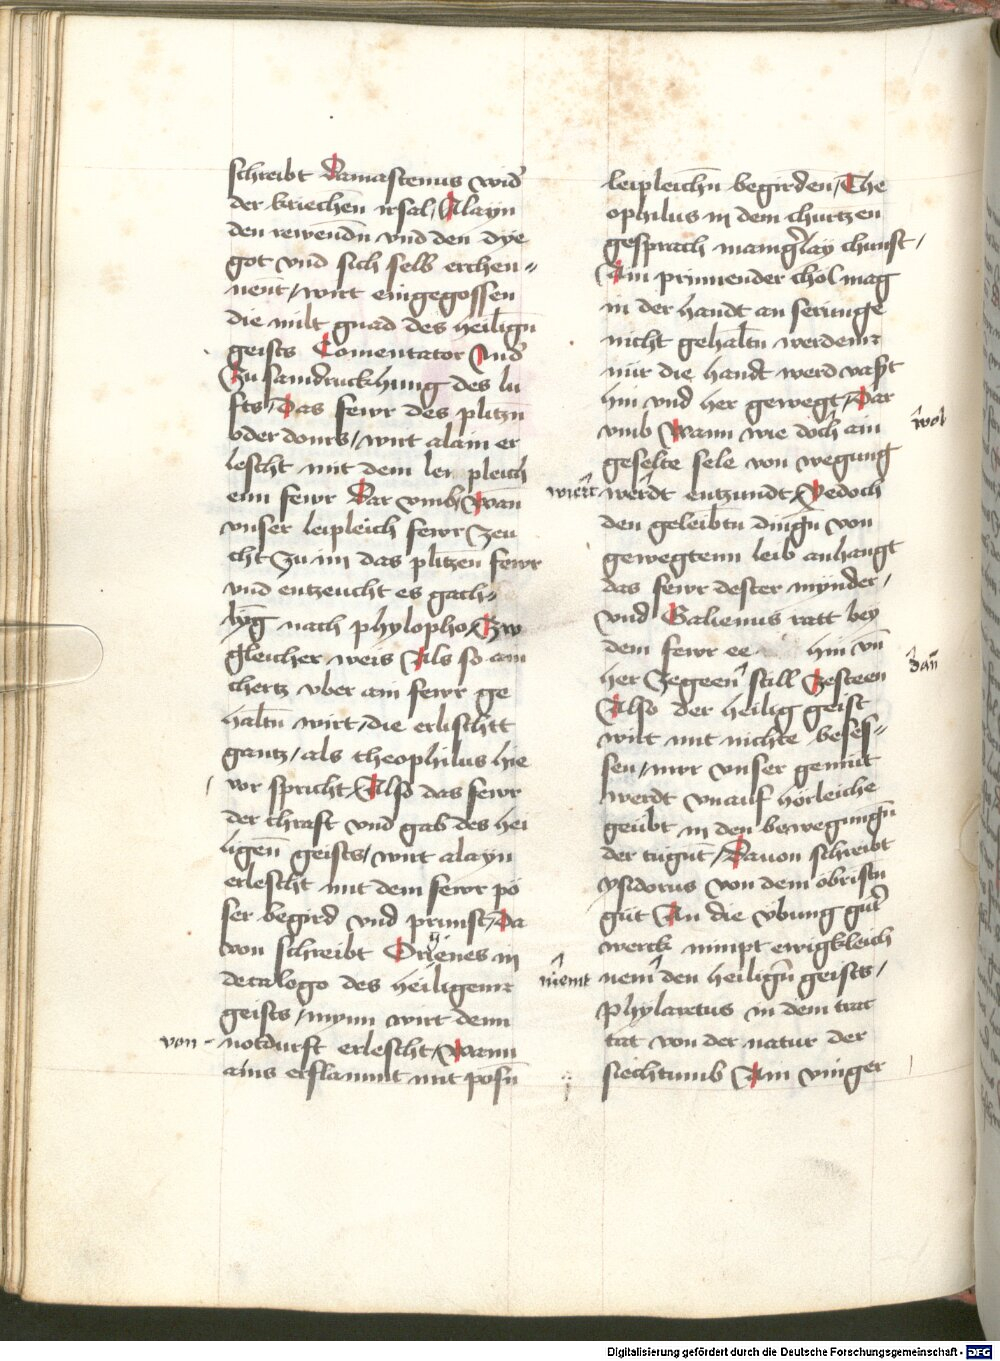 schreibt Damascenus wid̕
der kriechen irsal / Alayn
den rewendn̄ vnd den dye
got vnd sich selb erchen=
nent / wirt eingegossen
die milt gnad des heilign̄
geists Comentator Vnd̕
Zu samdruckhung des lu
fts / Das fewr des plitzn
oder donrs / wirt alain er
lescht mit dem lei pleich
enn fewr Dar vmb / Wan̄
vnser leipleich fewr Zeu
cht Zu im das plitzen̄ fewr
vnd entzeucht es gach=
lῡg nach phylopho / Zw
gleicher weis Als so ain
chertz vber ain fewr ge
haltn̄ wirt / die erlischtt
gantz / als theophilus hie
vor spricht / Also das fewr
der chraft vnd gab des hei
ligen̄ geists / wirt alayn
erlescht mit dem fewr pö
ser begird vnd prunst / Da
von schreibt Origenes in
decalogo des heiligenn
geists / mynn wirt denn
von - notdurft erlescht / Wann
ains erflammt mit posn̄
leipleichn̄ begirden / The
ophilus in dem churtzen
gesprach manig̕lay chunst /
Ain prinnender chol mag
in der handt an serunge
nicht gehaltn̄ werdenn
nur die handt werd vasst
hin vnd her gewegt / Dar
vmb Wann wie doch ain wol
geselte sele von wegung
wiert werdt entzundt / Yedoch
den geleibtn̄ dingn̄ von
gewegtenn leib anhangt
das fewr dester mynder /
vnd Galienus ratt bey
dem fewr ee hin vn̄ dan̄
her Zegeen̕ still Zesteen
Also der heilig geist
wirt mit nichte beses=
sen / nur vnser gemüt
werdt vnauf hörleiche
geübt in den bewegungn̄
der tugnt̄ / Dauon schreibt
ysidorus von dem obristn
güt An die übung gut̕
werck nimpt ewigkleich
niemt nem̕ den heilign̄ geists /
Phylaretus in dem trac
tat von der natur der
siechtumb Ain vinger
Digitalisierung gefördert durch die Deutsche Forschungsgemeinschaft - DFG